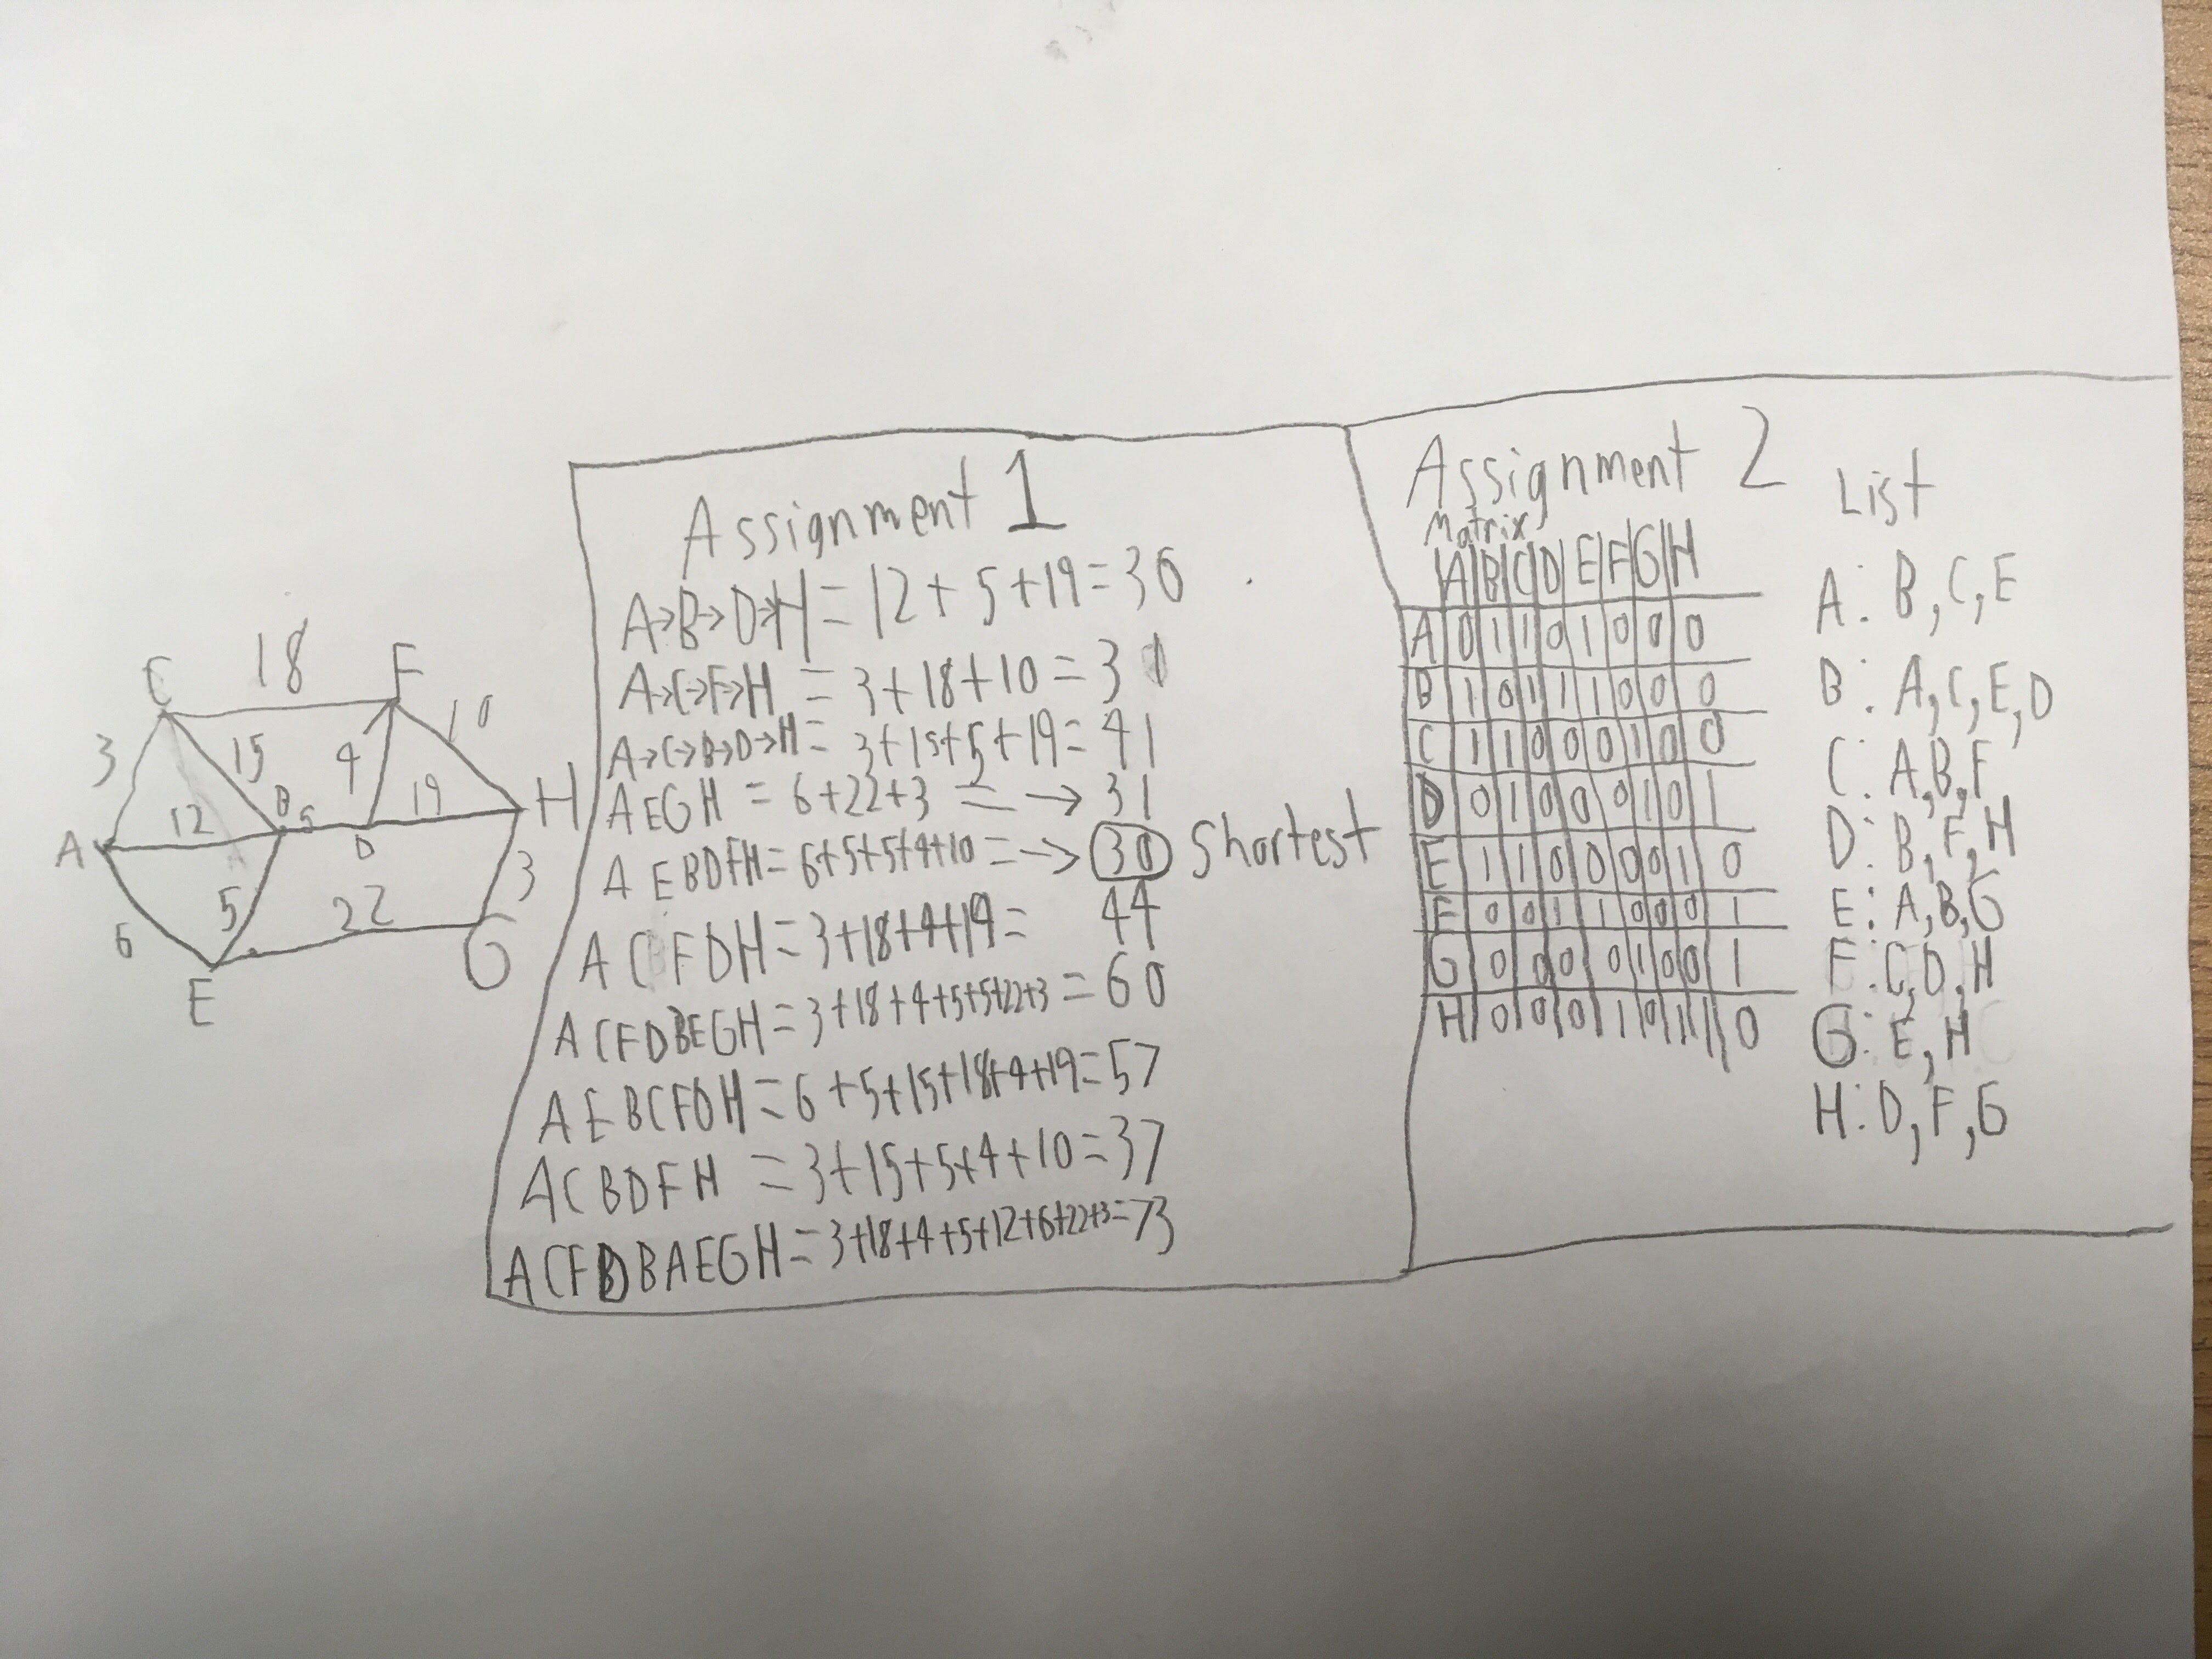 C 18 F
3 15 4 10
A 12 B 5 D 19 H
6 5 22 3
E G
Assignment 1
A→B→D→H = 12 + 5 + 19 = 36
A→C→F→H = 3 + 18 + 10 = 31
A→C→B→D→H = 3 + 15 + 5 + 19 = 41
AEGH = 6+22+3 = → 31
AEBDFH = 6+5+5+4+10 = → 30 Shortest
ACFDH = 3+18+4+19 = 44
ACFDBEGH = 3+18+4+5+5+22+3 = 60
AEBCFDH = 6+5+15+18+4+19=57
ACBDFH = 3+15+5+4+10=37
ACFDBAEGH = 3+18+4+5+12+6+22+3=73
Assignment 2
Matrix
A B C D E F G H
A 0 1 1 0 1 0 0 0
B 1 0 1 1 1 0 0 0
C 1 1 0 0 0 1 0 0
D 0 1 0 0 0 1 0 1
E 1 1 0 0 0 0 1 0
F 0 0 1 1 0 0 0 1
G 0 0 0 0 1 0 0 1
H 0 0 0 1 0 1 1 0
List
A: B, C, E
B: A, C, E, D
C: A, B, F
D: B, F, H
E: A, B, G
F: C, D, H
G: E, H
H: D, F, G